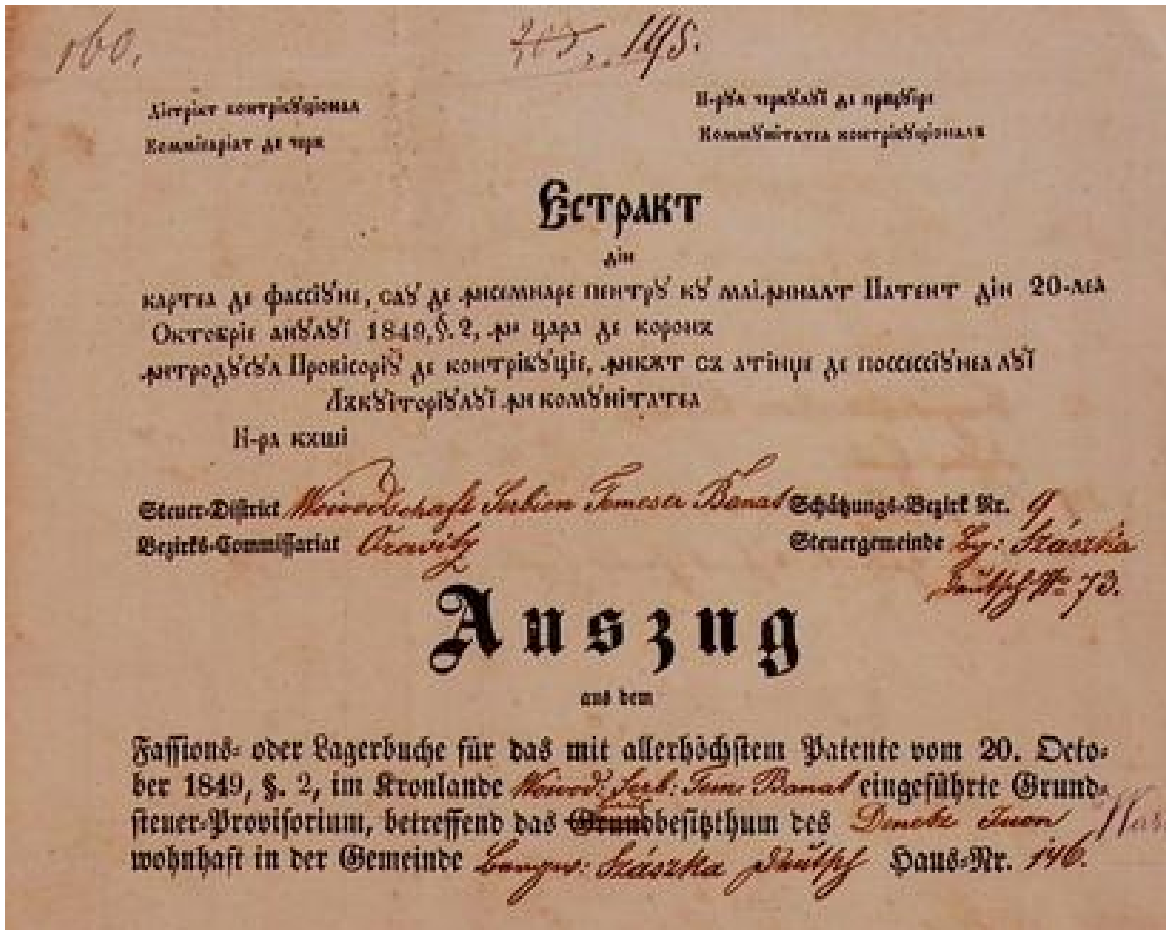 160.
195.
Дістрікт контрібꙋціонал
Н-рꙋл черкꙋлꙋі де прецꙋіре
Коммісаріат де черк
Коммꙋнітатеа контрібꙋціоналъ
Естракт
дін
картеа де фассіꙋне, саꙋ де ꙟсемнаре пентрꙋ кꙋ маі.ꙟналт Патент дін 20-леа
Октобріе анꙋлꙋі 1849, §. 2, ꙟ цара де коронъ
ꙟтродꙋсꙋл Провісоріꙋ де контрібꙋціе, ꙟкѫт съ атінџе де поссессіꙋнеа лꙋі
Лъкꙋіторіꙋлꙋі ꙟ комꙋнітатеа
Н-ра къші
Steuer-District Woiwodschaft Serbien Temeser Banat Schätzungs-Bezirk Nr. 9
Bezirks-Commissariat Orawitz Steuergemeinde Szászka
Deutsch No 73.
Auszug
aus dem
Fassions- oder Lagerbuche für das mit allerhöchstem Patente vom 20. Octo-
ber 1849, §. 2, im Kronlande Woiwod: Serb: Tem: Banat eingeführte Grund-
steuer-Provisorium, betreffend das Grundbesitzthum des
wohnhaft in der Gemeinde Szászka Deutsch Haus-Nr. 146.